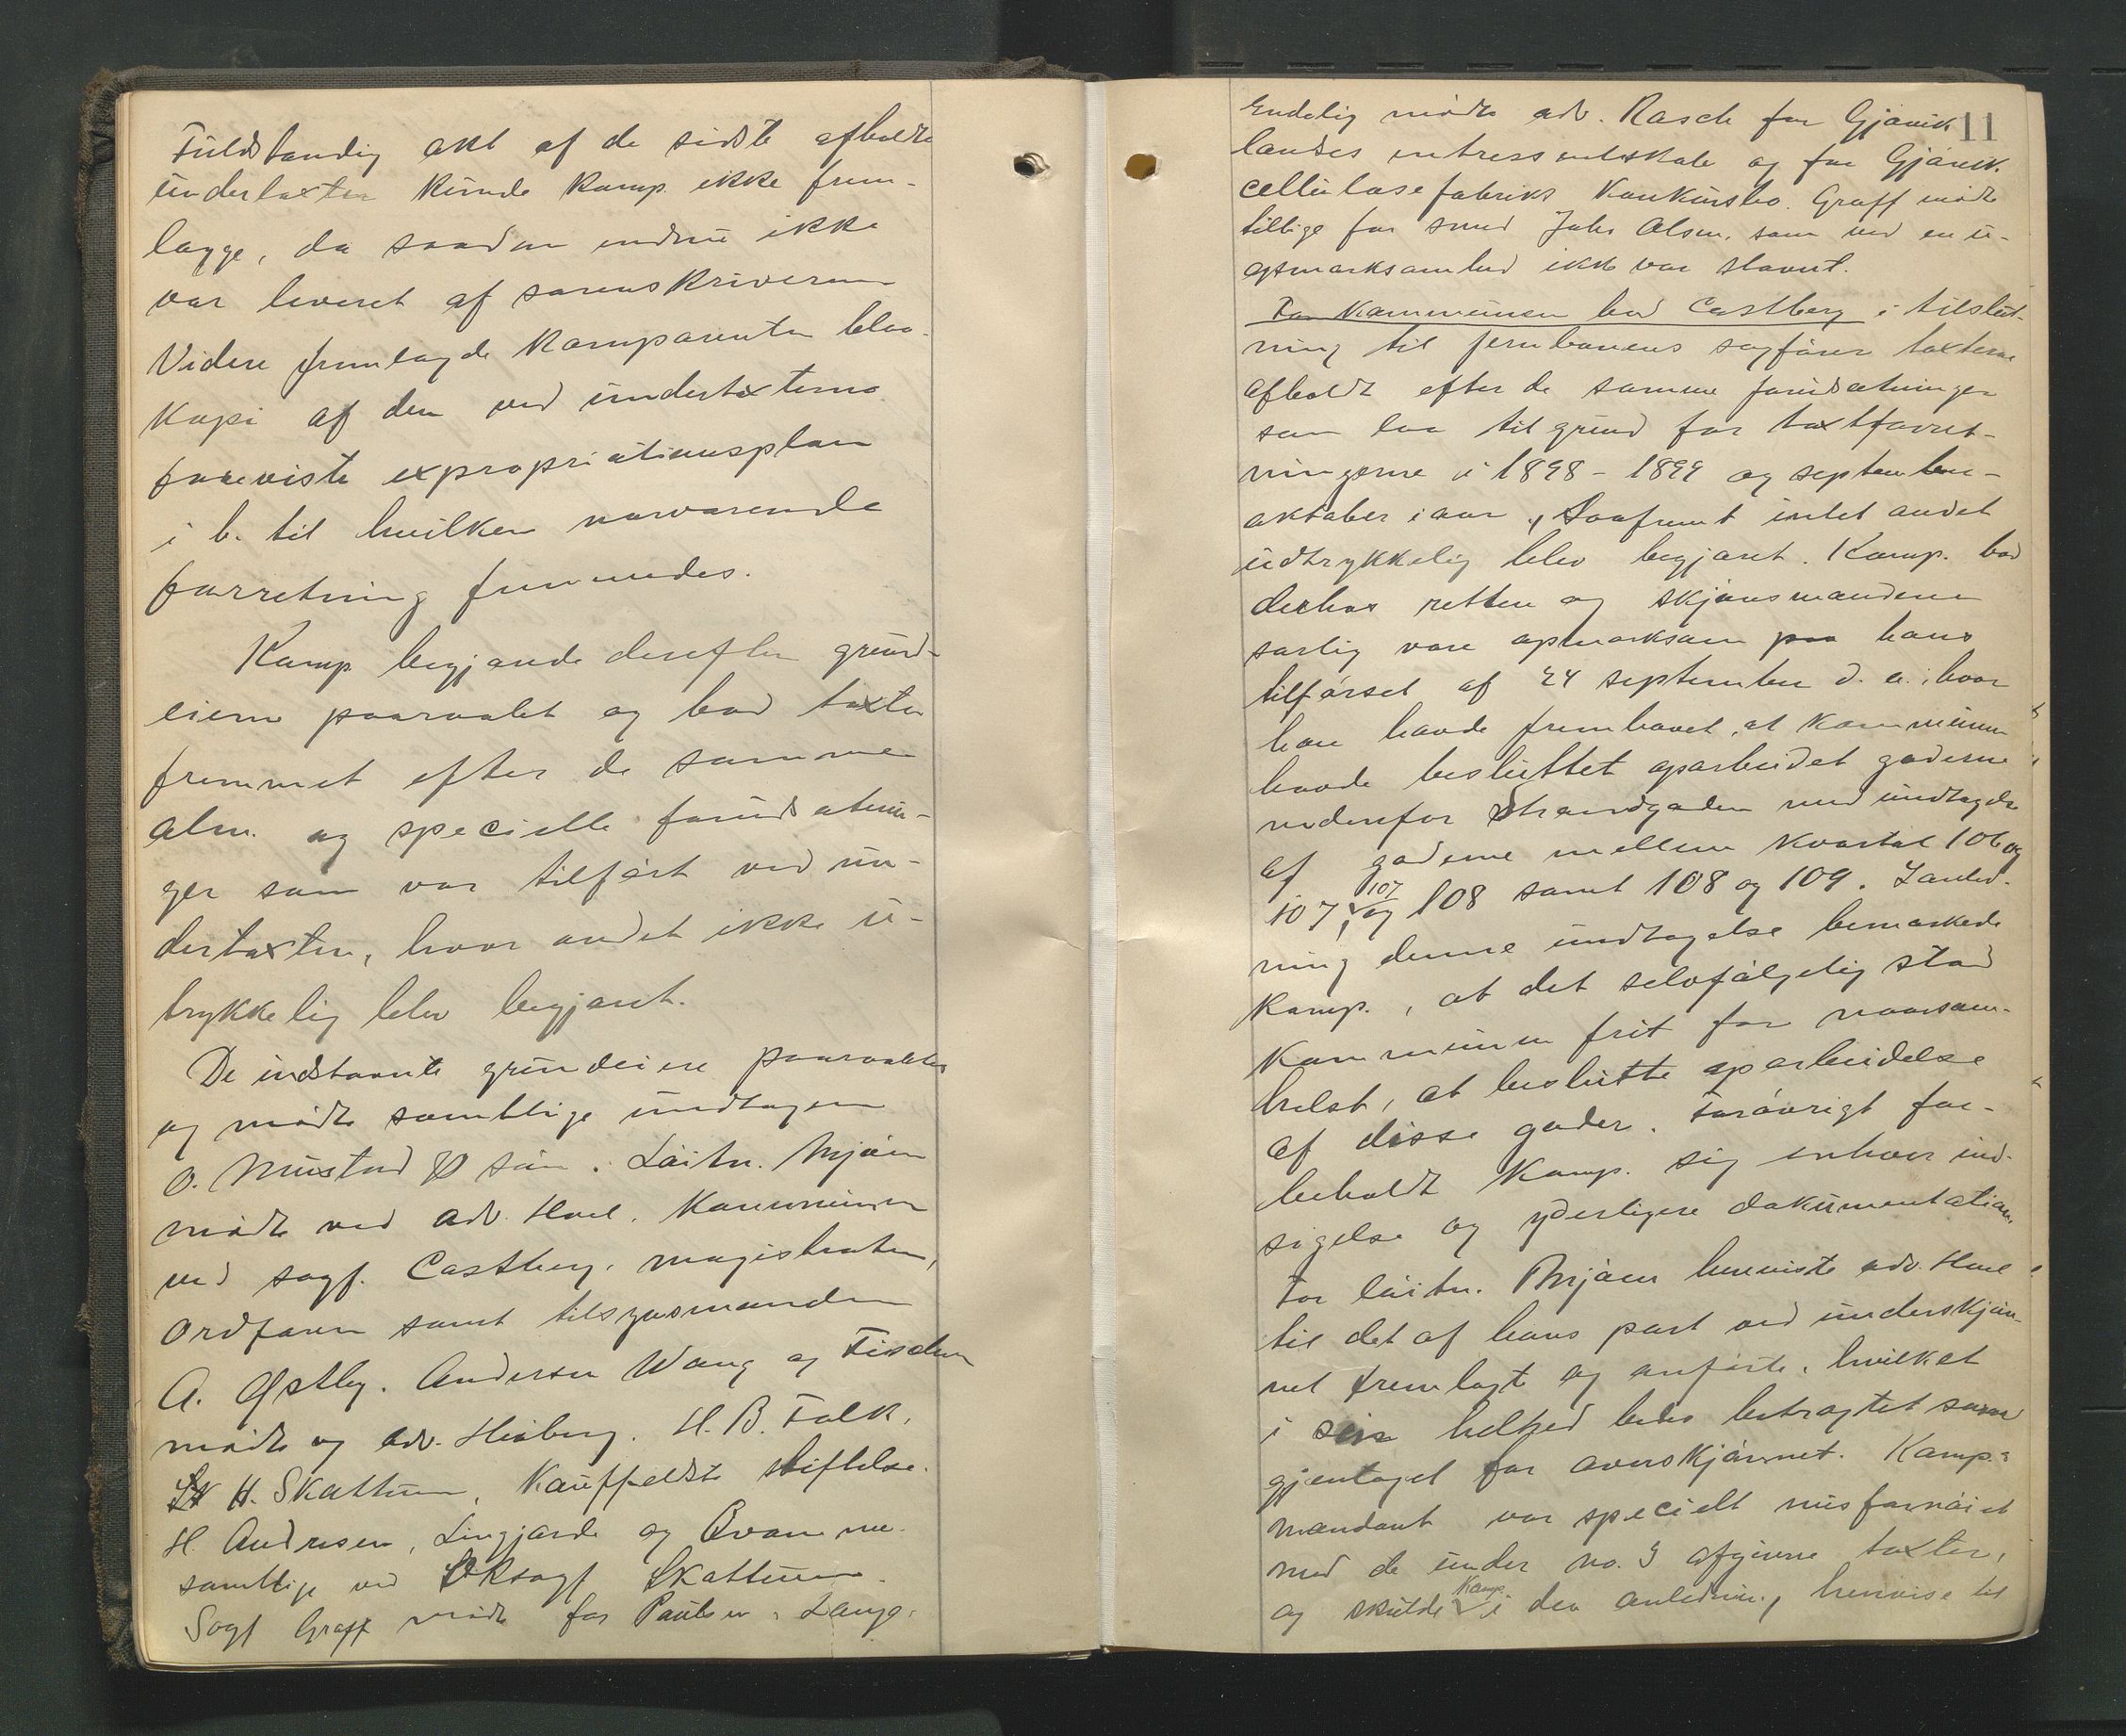 Fuldstændig akt af de sidste afholdte
undertaxter kunde komp. ikke frem-
lægge, da saadan endnu ikke
var leveret af sorenskriveren
Videre fremlagde komparenten blaa-
kopi af den ved undertaxterne
foreviste expropriationsplan
i b. til hvilken nærværende
forretning fremmedes.
Komp begjærede derefter grund-
eierne paaraabt og bad taxten
fremmet efter de samme
alm. og specielle forudsætnin-
ger som var tilført ved un-
dertaxten, hvor andet ikke u-
trykkelig blev begjæret.
De indstævnte grundeiere paaraabtes
og mødte samtlige undtagen
O. Mustad & søn. Løitn. Mjøen
mødte ved adv. Hoel. Kommunen
ved sagf. Castberg, magistraten,
ordføren samt tilsynsmanden
A. Østby. Andersen Wang og Fischer
mødte og adv. Heiberg. H. B. Falk,
H. Skattum, Kauffeldts stiftelse.
H. Andresen, Lingjærde og Qvamme
samtlige ved Oksagf Skattum.
Sagf Graff mødte for Paulsen, Lange,
11
Endelig mødte adv. Rasch for Gjøvik
landes intressentskab og for Gjøvik
cellulosefabriks konkursbo. Graff mødte
tillige for smed Johs Olsen, som ved en u-
opmærksomhed ikke var stævnt.
For kommunen bad Castberg i tilslut-
ning til jernbanens sagfører taxterne
afholdt efter de samme forudsætninger
som laa til grund for taxtforret-
ningerne i 1898-1899 og september-
oktober i aar, saafremt intet andet
udtrykkelig blev begjæret. Komp. bad
derhos retten og skjønsmændene
særlig være opmærksom paa hans
tilførsel af 24 september d. a. hvor
han havde fremhævet, at kommunen
havde besluttet oparbeidet gaderne
nedenfor Strandgaden med undtagelse
af gaderne mellem kvartal 106 og
107, 107 og 108 samt 108 og 109. I anled-
ning denne undtagelse bemærkede
komp., at det selvfølgelig stod
kommunen frit for naarsom-
helst, at beslutte oparbeidelse
af disse gader. Forøvrigt for-
beholdt komp. sig enhver ind-
sigelse og yderligere dokumentation.
For løitn. Mjøen henviste adv. Hoel
til det af hans part ved underskjøn-
net fremlagte og anførte, hvilket
i sin helhed bedes betragtet som
gjentaget for overskjønnet. Komp:s
mandant var specielt misfornøiet
med de under no. 3 afgivne taxter,
og skulde komp. i den anledning henvise til